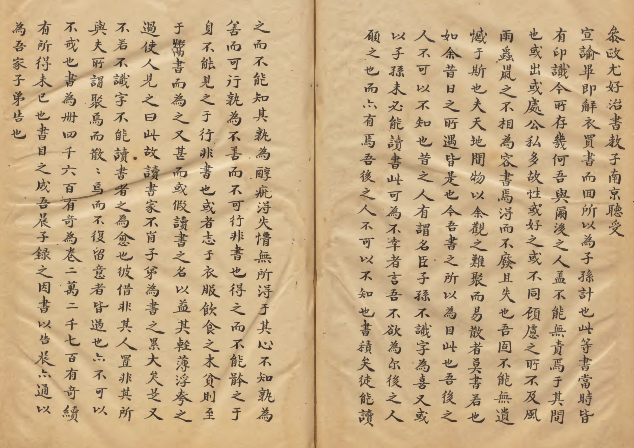 參政尤好治書教子南京聽受
宣諭畢即解衣買書而回所以為子孫計也此等書當時皆
有印識今所存幾何吾與爾後之人蓋不能無責焉于其間
也或出或處公私多故性或好之或不同頋慮之所不及風
雨蟲鼠之不相為容書焉得而不廢且失也吾固不能無遺
憾于斯也夫天地間物以余觀之難聚而易散者莫書若也
如余昔日之所遇皆是也今吾書之所以為目此也吾後之
人不可以不知也昔之人有謂名臣子孫不識字為喜又或
以子孫未必能讀書此可為不幸者言吾不欲為尔後之人
願之也而亦有焉吾後之人不可以不知也書積矣徒能讀
之而不能知其孰為醇疵得失懵無所得于其心不知孰為
善而可行孰為不善而不可行非書也得之而不能齡之于
身不能見之于行非書也或者志于衣服飲食之末貪則至
于鬻書而為之又甚而或假讀書之名以益其輕薄浮夸之
過使人見之曰此故讀書家不肖子弟為書之累大矣是又
不若不識字不能讀書者之為愈也彼借非其人置非其所
與夫所謂聚焉而散散焉而不復留意者皆過也亦不可以
不戒也書為冊四千六百有奇為卷二萬二千七百有奇續
有所得未已也書目之成吾晨子錄之因書以告晨亦通以
為吾家子弟告也